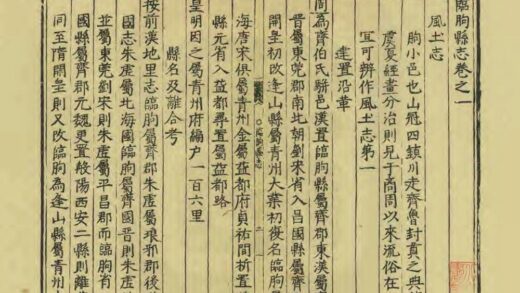 臨朐縣志卷之一
風土志
朐小邑也山冠四鎮川走齊魯封貢之典
虞夏經畫分治則見于商周以來流俗在
宜可辨作風土志第一
建置沿革
間為齊伯氏駢邑漢置臨朐縣屬齊郡東漢屬
晉屬東莞郡南北朝劉宋省入昌國縣屬齊
開皇初改逢山縣屬青州大業初復名臨朐屬
海唐宋俱屬青州金屬益都府貞祐間析置
縣元省入益都尋置屬益都路
皇明因之屬青州府編户一百六里
縣名及離合考
按前漢地里志臨朐屬齊郡朱虛屬琅邪郡後
國志朱虛屬北海國臨朐屬齊國晉則朱虛
並屬東莞劉宋則朱虛屬平昌郡而臨朐省
國縣屬齊郡元魏更置般陽西安二縣則離
同至隋開皇則又改臨朐為逢山縣屬青州